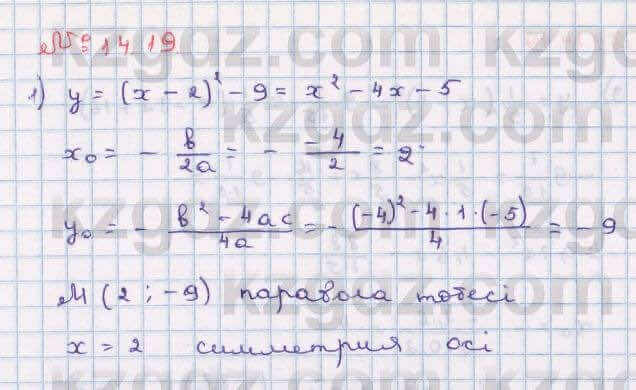 № 14 19
1) y = (x - 2)² - 9 = x² - 4x - 5
x₀ = - b/2a = - -4/2 = 2
y₀ = - b² - 4ac/4a = - (-4)² - 4 · 1 · (-5)/4 = - 9
M (2 ; -9) парабола төбесі
x = 2 симметрия осі